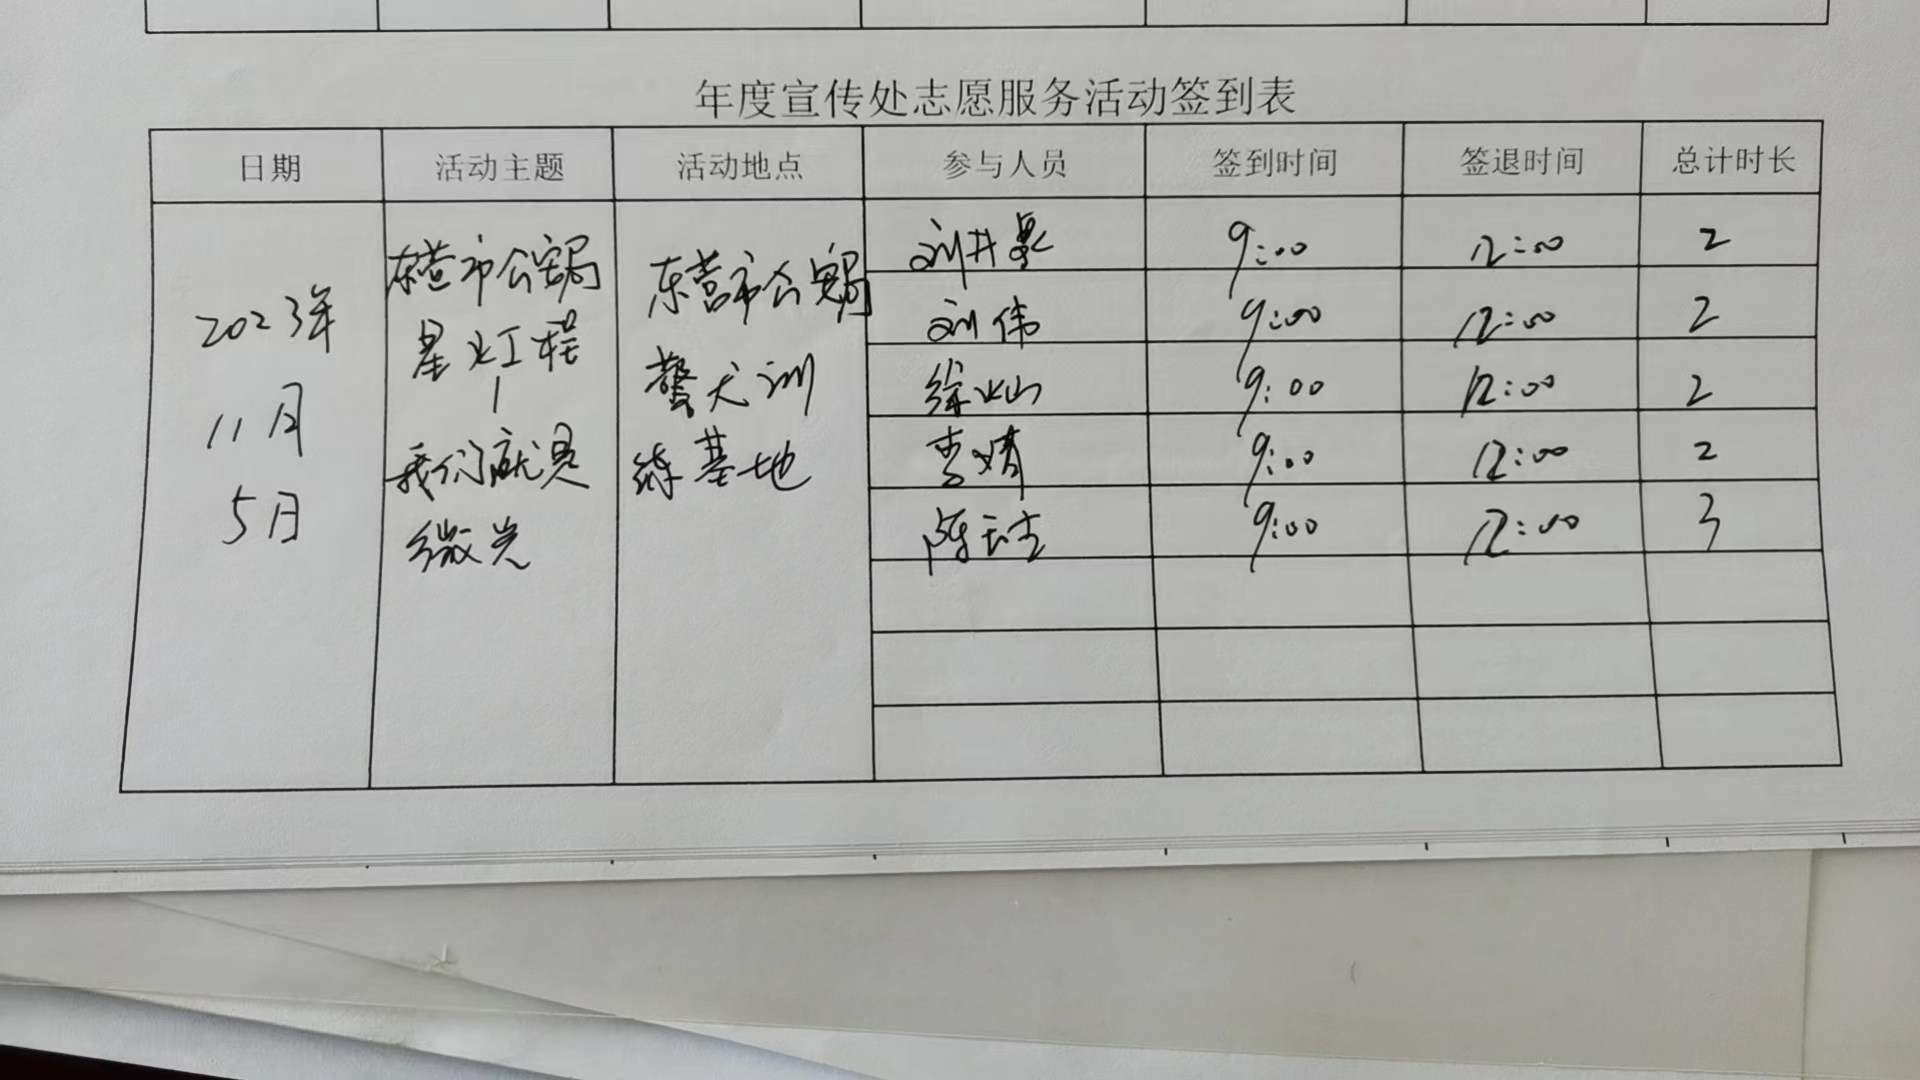 年度宣传处志愿服务活动签到表
日期 活动主题 活动地点 参与人员 签到时间 签退时间 总计时长
2023年
11月
5日
东营市公安局
星火工程
我们就是
微光
东营市公安局
警犬训
练基地
刘井 9:00 12:00 2
刘伟 9:00 12:00 2
徐山 9:00 12:00 2
李婧 9:00 12:00 2
陈 9:00 12:00 3